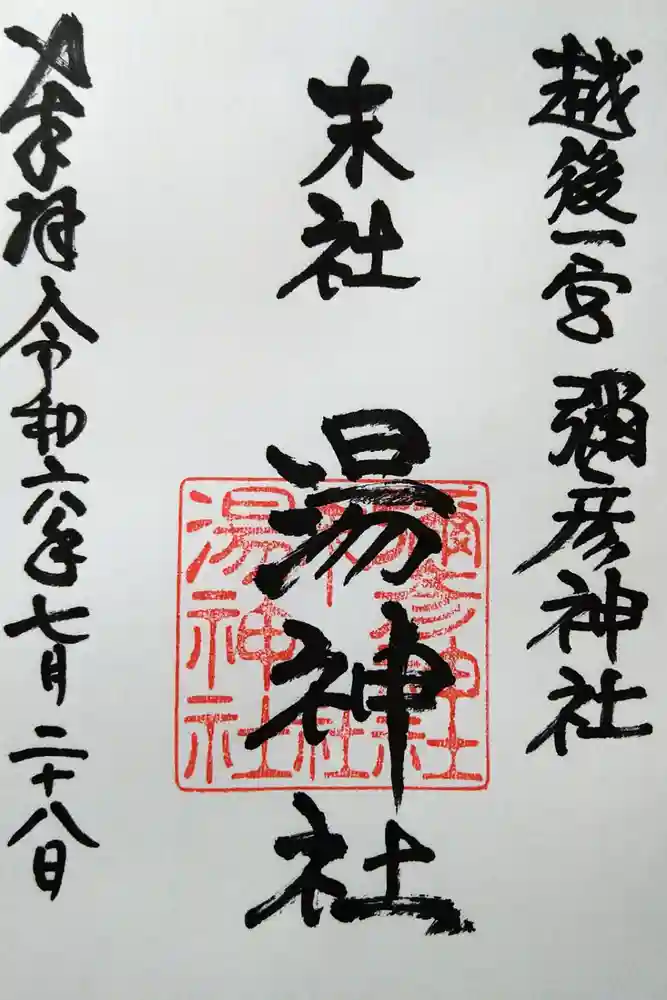 越後一宮 彌彦神社
末社 湯神社
奉拝 令和六年七月二十八日
彌彦神社
末社
湯神社